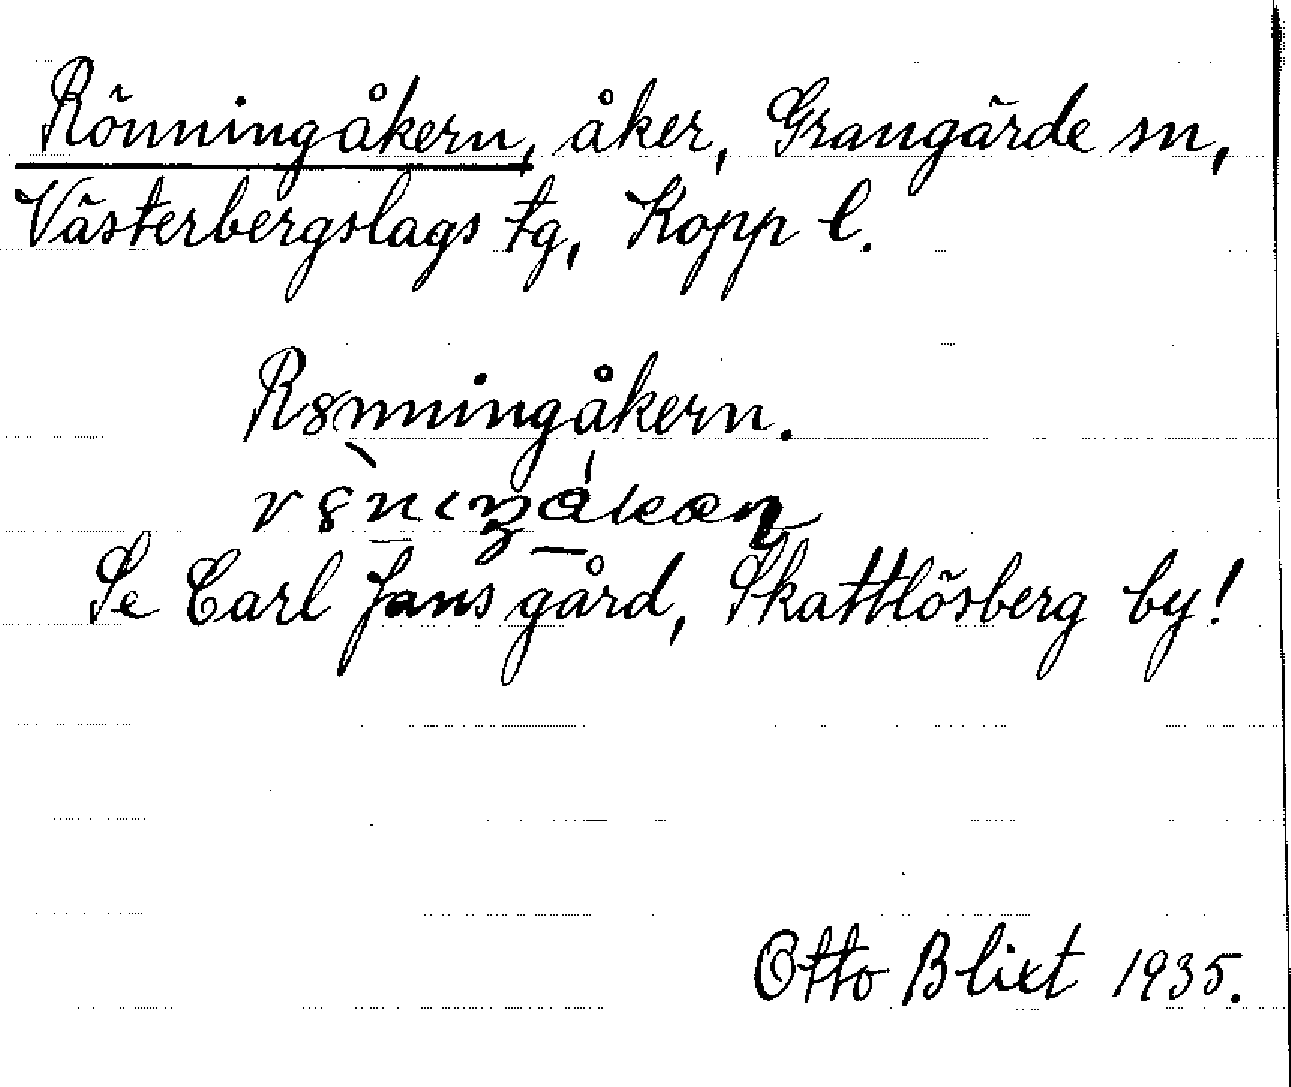 Rönningåkern, åker, Grangärde sn,
Västerbergslags tg, Kopp l.
Rönningåkern.
Se Carl Jans gård, Skattlösberg by!
Otto Blixt 1935.